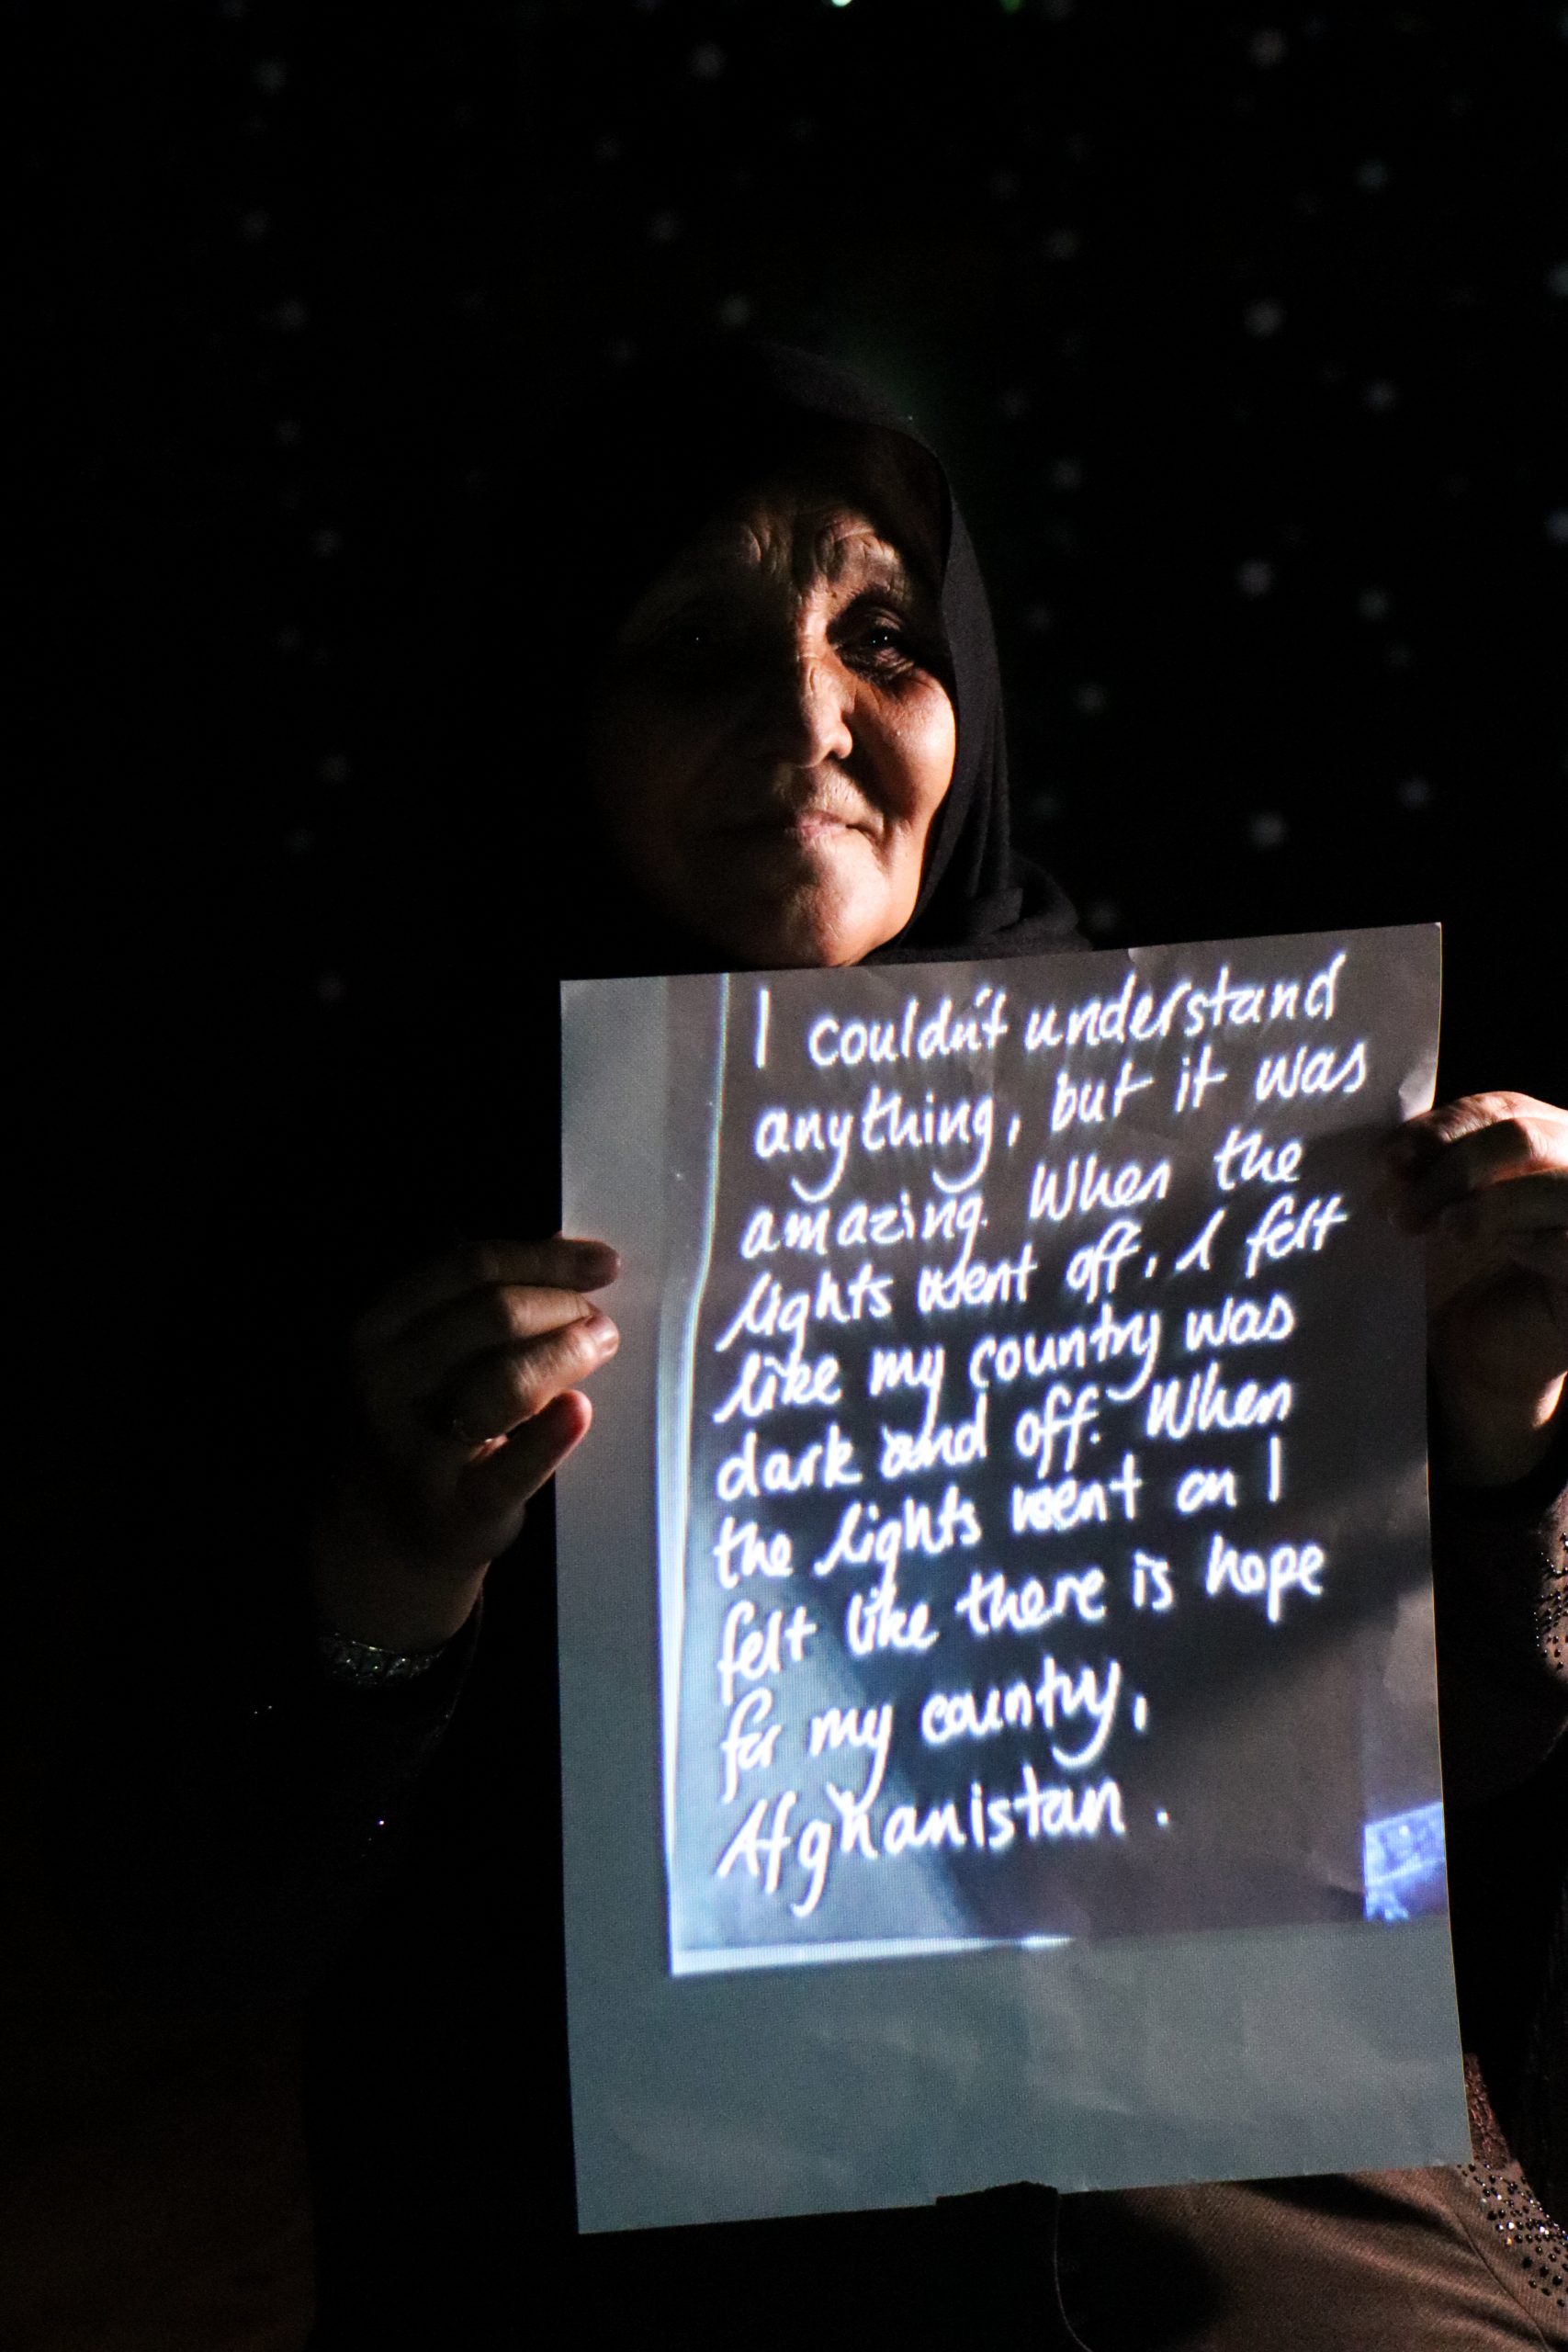 I couldn't understand
anything, but it was
amazing. When the
lights went off, I felt
like my country was
dark and off. When
the lights went on I
felt like there is hope
for my country,
Afghanistan.